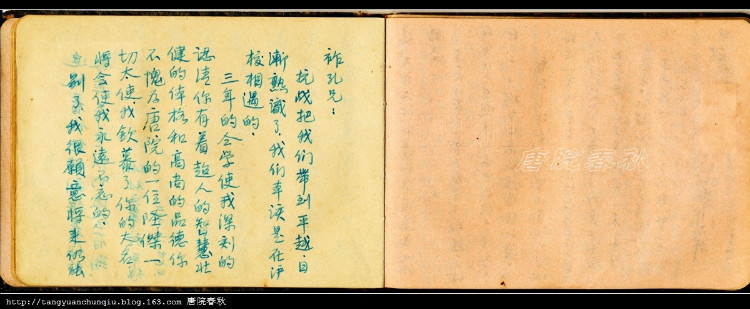 祚孔兄：
抗战把我们带到平越，日
渐熟识了，我们幸误是在沪
校相遇的．
三年的仝学使我深刻的
认清你有着超人的智慧壮
健的体格和高尚的品德你
不愧为唐院的一位隆傑一
切太使我钦慕了你的大名
将会使我永远不忘的．
别了我很愿意将来仍能
唐院春秋
http://tangyuanchunqiu.blog.163.com 唐院春秋